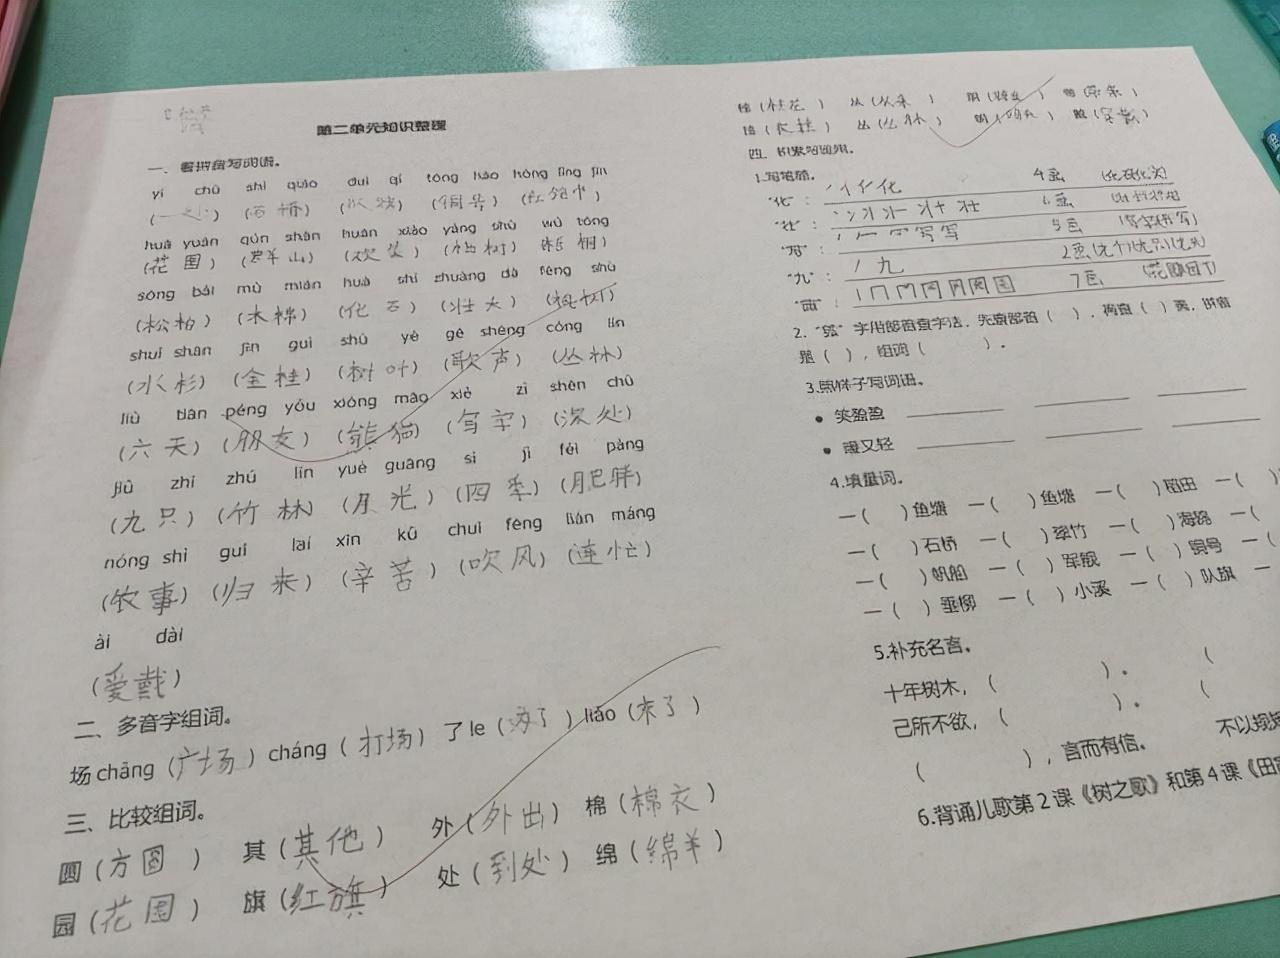 第二单元知识整理
一、看拼音写词语。
yí chù shí qiáo duì qí tóng hào hóng lǐng jīn
(一处) (石桥) (队旗) (铜号) (红领巾)
huā yuán qún shān huān xiào yáng shù wú tóng
(花园) (群山) (欢笑) (杨树) (梧桐)
sōng bǎi mù mián huà shí zhuàng dà fēng shù
(松柏) (木棉) (化石) (壮大) (枫树)
shuǐ shān jīn guì shù yè gē shēng cóng lín
(水杉) (金桂) (树叶) (歌声) (丛林)
liù tiān péng yǒu xióng māo xiě zì shēn chù
(六天) (朋友) (熊猫) (写字) (深处)
jiǔ zhī zhú lín yuè guāng sì jì féi pàng
(九只) (竹林) (月光) (四季) (肥胖)
nóng shì guī lái xīn kǔ chuī fēng lián máng
(农事) (归来) (辛苦) (吹风) (连忙)
ài dài
(爱戴)
二、多音字组词。
场 chǎng (广场) cháng (打场) 了 le ( ) liǎo (来了)
三、比较组词。
圆 (方圆) 其 (其他) 外 (外出) 棉 (棉衣)
园 (花园) 旗 (红旗) 处 (到处) 绵 (绵羊)
桂 (桂花) 从 (从来)
丛 (丛林)
四、积累与运用。
1.写笔顺。
"化": 化 4画
"壮": 壮 6画
"写": 写 5画
"九": 九 2画
"园": 园 7画
2. 字用部首查字法,先查部首( ),再查( )画,
( ),组词( )。
3.照样子写词语。
笑盈盈
重又轻
4.填量词。
一( )鱼塘 一( )鱼塘 一( )稻田 一(
一( )石桥 一( )翠竹 一( )海鸥 一(
一( )帆船 一( )军舰 一( )铜号 一(
一( )垂柳 一( )小溪 一( )队旗 一
5.补充名言。
十年树木,( )。 (
己所不欲,( )。 (
( ),言而有信。 不以规矩
6.背诵儿歌第 2 课《树之歌》和第 4 课《田家